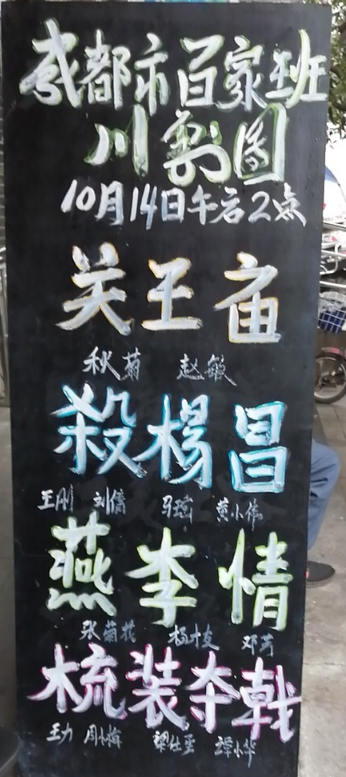 成都市百家班
川剧团
10月14日午后2点
关王庙
秋菊 赵敏
殺楊昌
王刚 刘倩 马瑜 黄小伟
燕李情
张菊花 杨枝 邓芳
梳装夺戟
王力 周梅 梁仕 谭小华